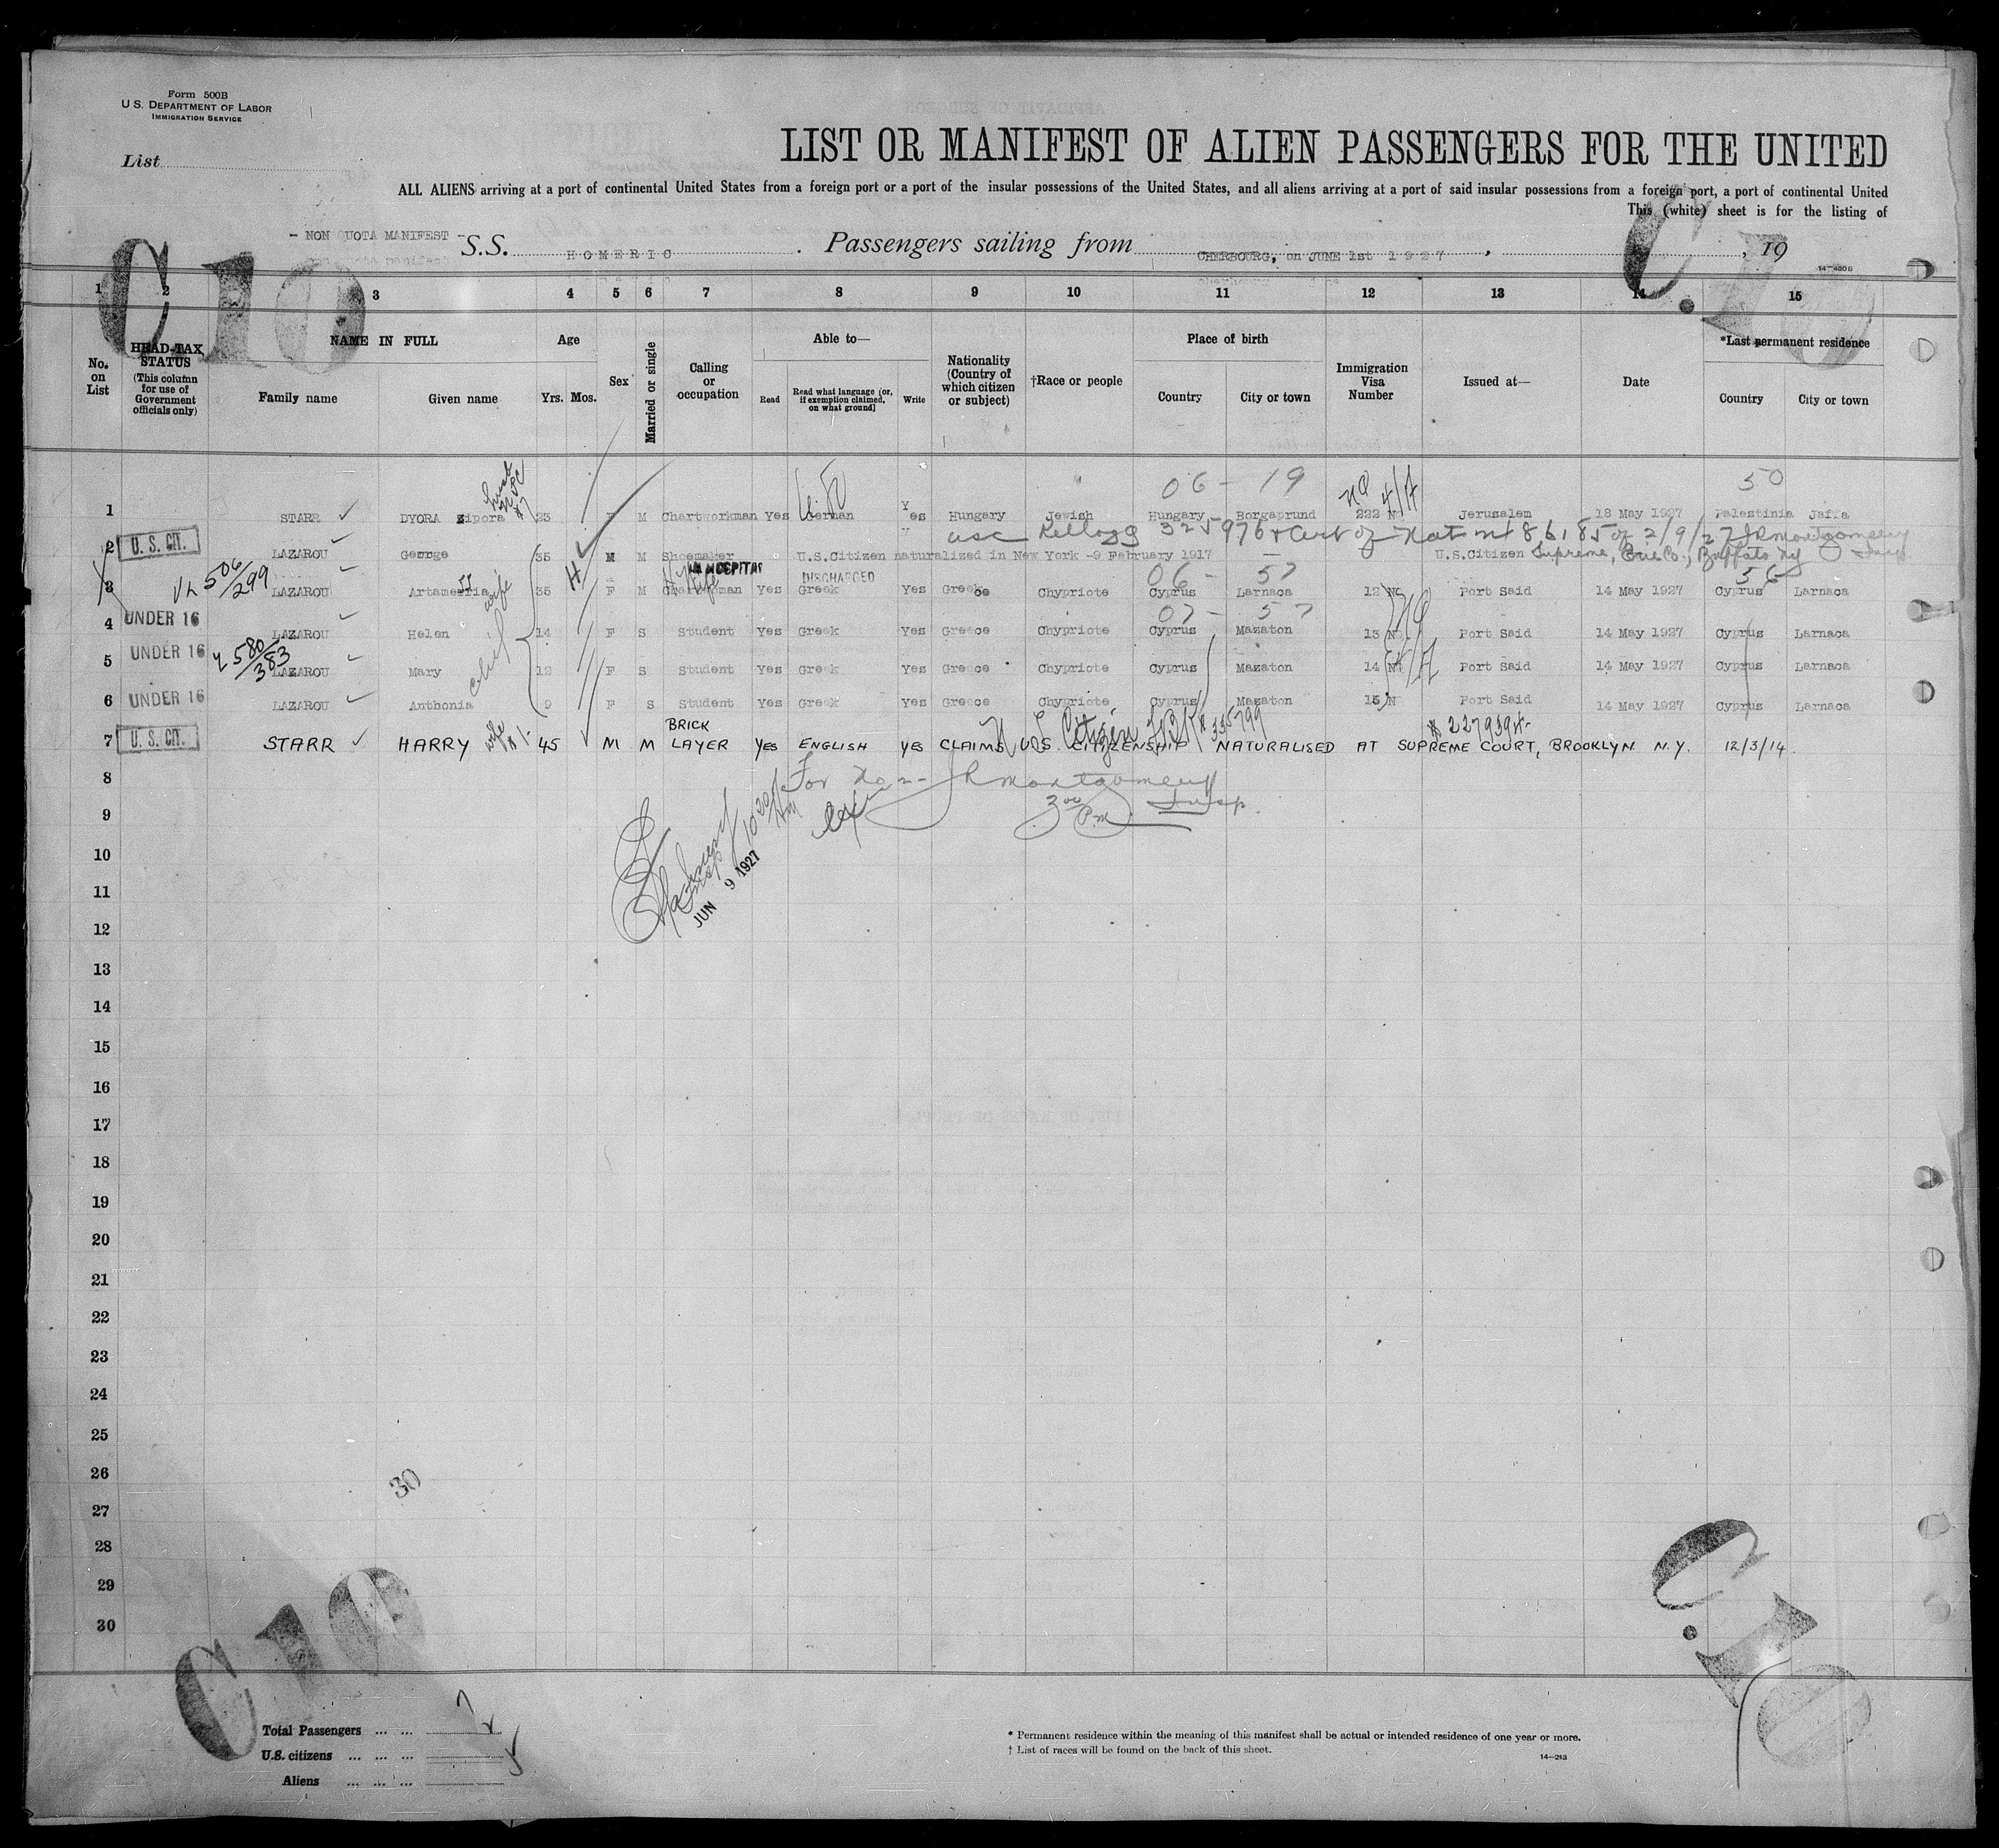 Form 500B
U.S. DEPARTMENT OF LABOR
IMMIGRATION SERVICE
List
LIST OR MANIFEST OF ALIEN PASSENGERS FOR THE UNITED
ALL ALIENS arriving at a port of continental United States from a foreign port or a port of the insular possessions of the United States, and all aliens arriving at a port of said insular possessions from a foreign port, a port of continental United
This (white) sheet is for the listing of
- NON QUOTA MANIFEST -
S.S. HOMERIC . Passengers sailing from CHERBOURG, on JUNE 1st 1927, , 19
14-480B
C10
C.10
1 2 3 4 5 6 7 8 9 10 11 12 13 14 15
No. on List
HEAD-TAX STATUS (This column for use of Government officials only)
NAME IN FULL
Family name Given name
Age
Yrs. Mos.
Sex
Married or single
Calling or occupation
Able to—
Read Read what language (or, if exemption claimed, on what ground) Write
Nationality (Country of which citizen or subject)
†Race or people
Place of birth
Country City or town
Immigration Visa Number
Issued at—
Date
*Last permanent residence
Country City or town
06 - 19 50
1 STARR DYORA Zipora 23 F M Chartworkman Yes German Yes Hungary Jewish Hungary Borgaprund 222 NQ Jerusalem 18 May 1927 Palestinia Jaffa
USC Kellogg 325976 + Cert of Nat 2/9/27 JRMontgomery
2 U. S. CIT. LAZAROU George 35 M M Shoemaker U.S.Citizen naturalized in New York -9 February 1917 U.S.Citizen Supreme, Erie Co., Buffalo NY Insp
IN HOSPITAL DISCHARGED 06 - 57 56
3 506/299 LAZAROU wife 35 F M Yes Greek Yes Greece Chypriote Cyprus Larnaca 12 NQ Port Said 14 May 1927 Cyprus Larnaca
07 - 57
4 UNDER 16 LAZAROU Helen 14 F S Student Yes Greek Yes Greece Chypriote Cyprus Mazaton 13 NQ Port Said 14 May 1927 Cyprus Larnaca
5 UNDER 16 580/383 LAZAROU Mary 12 F S Student Yes Greek Yes Greece Chypriote Cyprus Mazaton 14 NQ Port Said 14 May 1927 Cyprus Larnaca
6 UNDER 16 LAZAROU Anthonia 9 F S Student Yes Greek Yes Greece Chypriote Cyprus Mazaton 15 N Port Said 14 May 1927 Cyprus Larnaca
U S Citizen # 335799 # 2279394
7 U. S. CIT. STARR HARRY wife #1 45 M M BRICK LAYER YES ENGLISH YES CLAIMS U.S. CITIZENSHIP NATURALISED AT SUPREME COURT, BROOKLYN N.Y. 12/3/14.
8 For No 2 - JRMontgomery
9 3 00 PM Insp.
10 JUN 9 1927
11
12
13
14
15
16
17
18
19
20
21
22
23
24
25
26
30
27
28
29
30
C10
C.10
Total Passengers ... ... 7
U.S. citizens ... ... ...
Aliens ... ... ...
* Permanent residence within the meaning of this manifest shall be actual or intended residence of one year or more.
† List of races will be found on the back of this sheet.
14-213